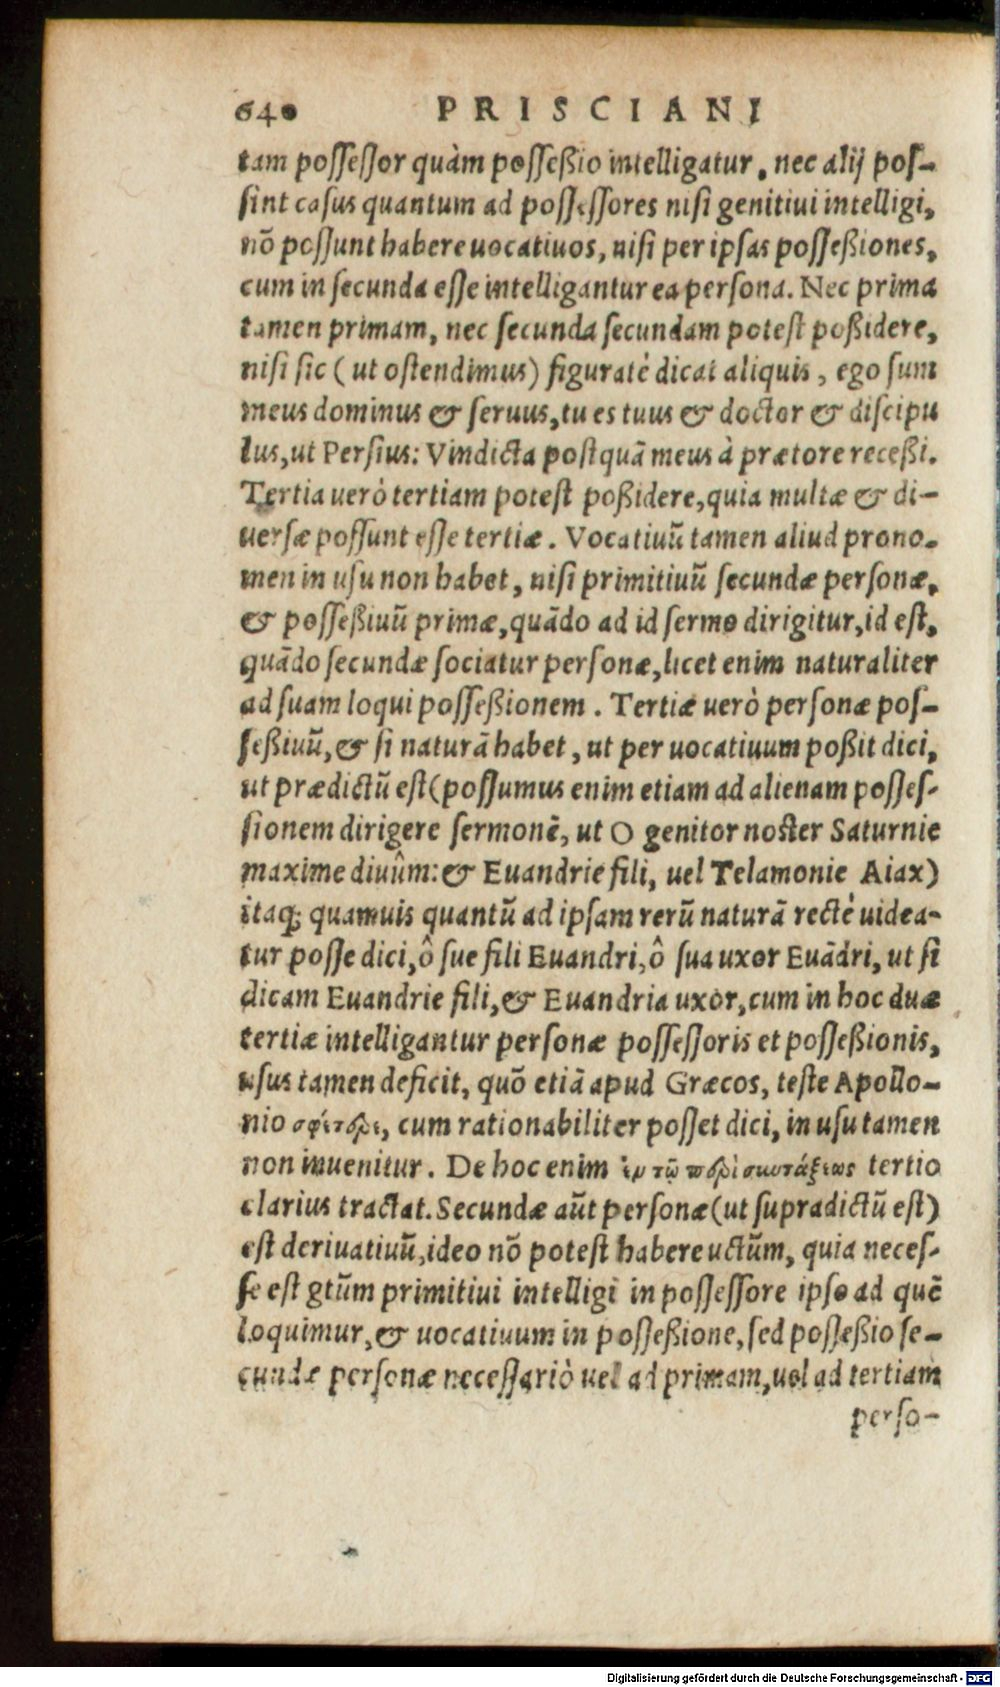 640 PRISCIANI
tam possessor quàm posseßio intelligatur, nec alij pos-
sint casus quantum ad possessores nisi genitiui intelligi,
nō possunt habere uocatiuos, nisi per ipsas posseßiones,
cum in secunda esse intelligantur ea persona. Nec prima
tamen primam, nec secunda secundam potest poßidere,
nisi sic (ut ostendimus) figuratè dicat aliquis, ego sum
meus dominus & seruus, tu es tuus & doctor & discipu
lus, ut Persius: Vindicta postquā meus à prætore receßi.
Tertia uerò tertiam potest poßidere, quia multæ & di-
uersæ possunt esse tertiæ. Vocatiuū tamen aliud prono-
men in usu non habet, nisi primitiuū secundæ personæ,
& posseßiuū primæ, quādo ad id sermo dirigitur, id est,
quādo secundæ sociatur personæ, licet enim naturaliter
ad suam loqui posseßionem. Tertiæ uerò personæ pos-
seßiuū, & si naturā habet, ut per uocatiuum poßit dici,
ut prædictū est (possumus enim etiam ad alienam posses-
sionem dirigere sermonē, ut O genitor noster Saturnie
maxime diuûm: & Euandrie fili, uel Telamonie Aiax)
itaq; quamuis quantū ad ipsam rerū naturā rectè uidea-
tur posse dici, ô sue fili Euandri, ô sua uxor Euādri, ut si
dicam Euandrie fili, & Euandria uxor, cum in hoc duæ
tertiæ intelligantur personæ possessoris et posseßionis,
usus tamen deficit, quō etiā apud Græcos, teste Apollo-
nio σφέτερε, cum rationabiliter posset dici, in usu tamen
non inuenitur. De hoc enim ἐν τῷ περὶ συντάξεως tertio
clarius tractat. Secundæ aūt personæ (ut supradictū est)
est deriuatiuū, ideo nō potest habere uctūm, quia neces-
se est gtūm primitiui intelligi in possessore ipso ad quē
loquimur, & uocatiuum in posseßione, sed posseßio se-
cundæ personæ necessariò uel ad primam, uel ad tertiam
perso-
Digitalisierung gefördert durch die Deutsche Forschungsgemeinschaft - DFG